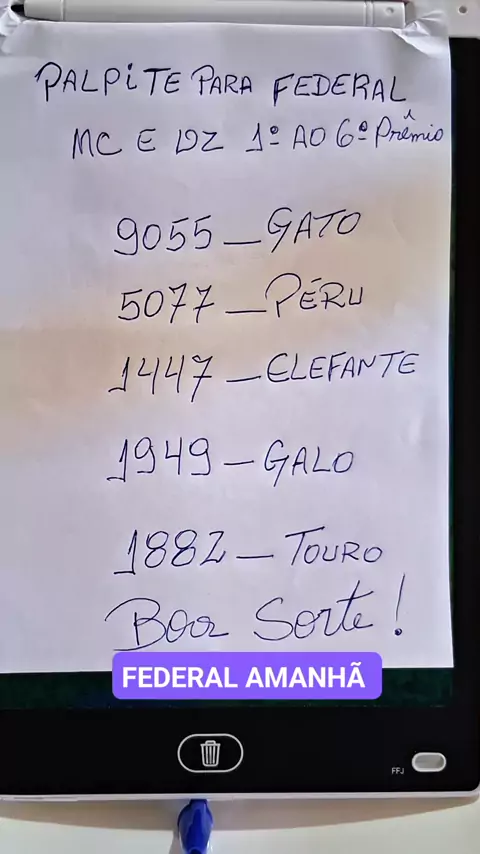 PALPITE PARA FEDERAL
MC E DZ 1º AO 6º Prêmio
9055 — GATO
5077 — PÉRU
1447 — ELEFANTE
1949 — GALO
1882 — TOURO
Boa Sorte!
FEDERAL AMANHÃ
FFJ